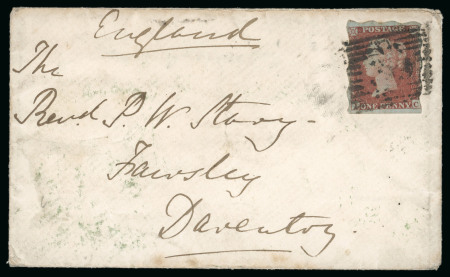 England
The
Revd. P. W. Story -
Fawsley
Daventry.
POSTAGE
ONE PENNY